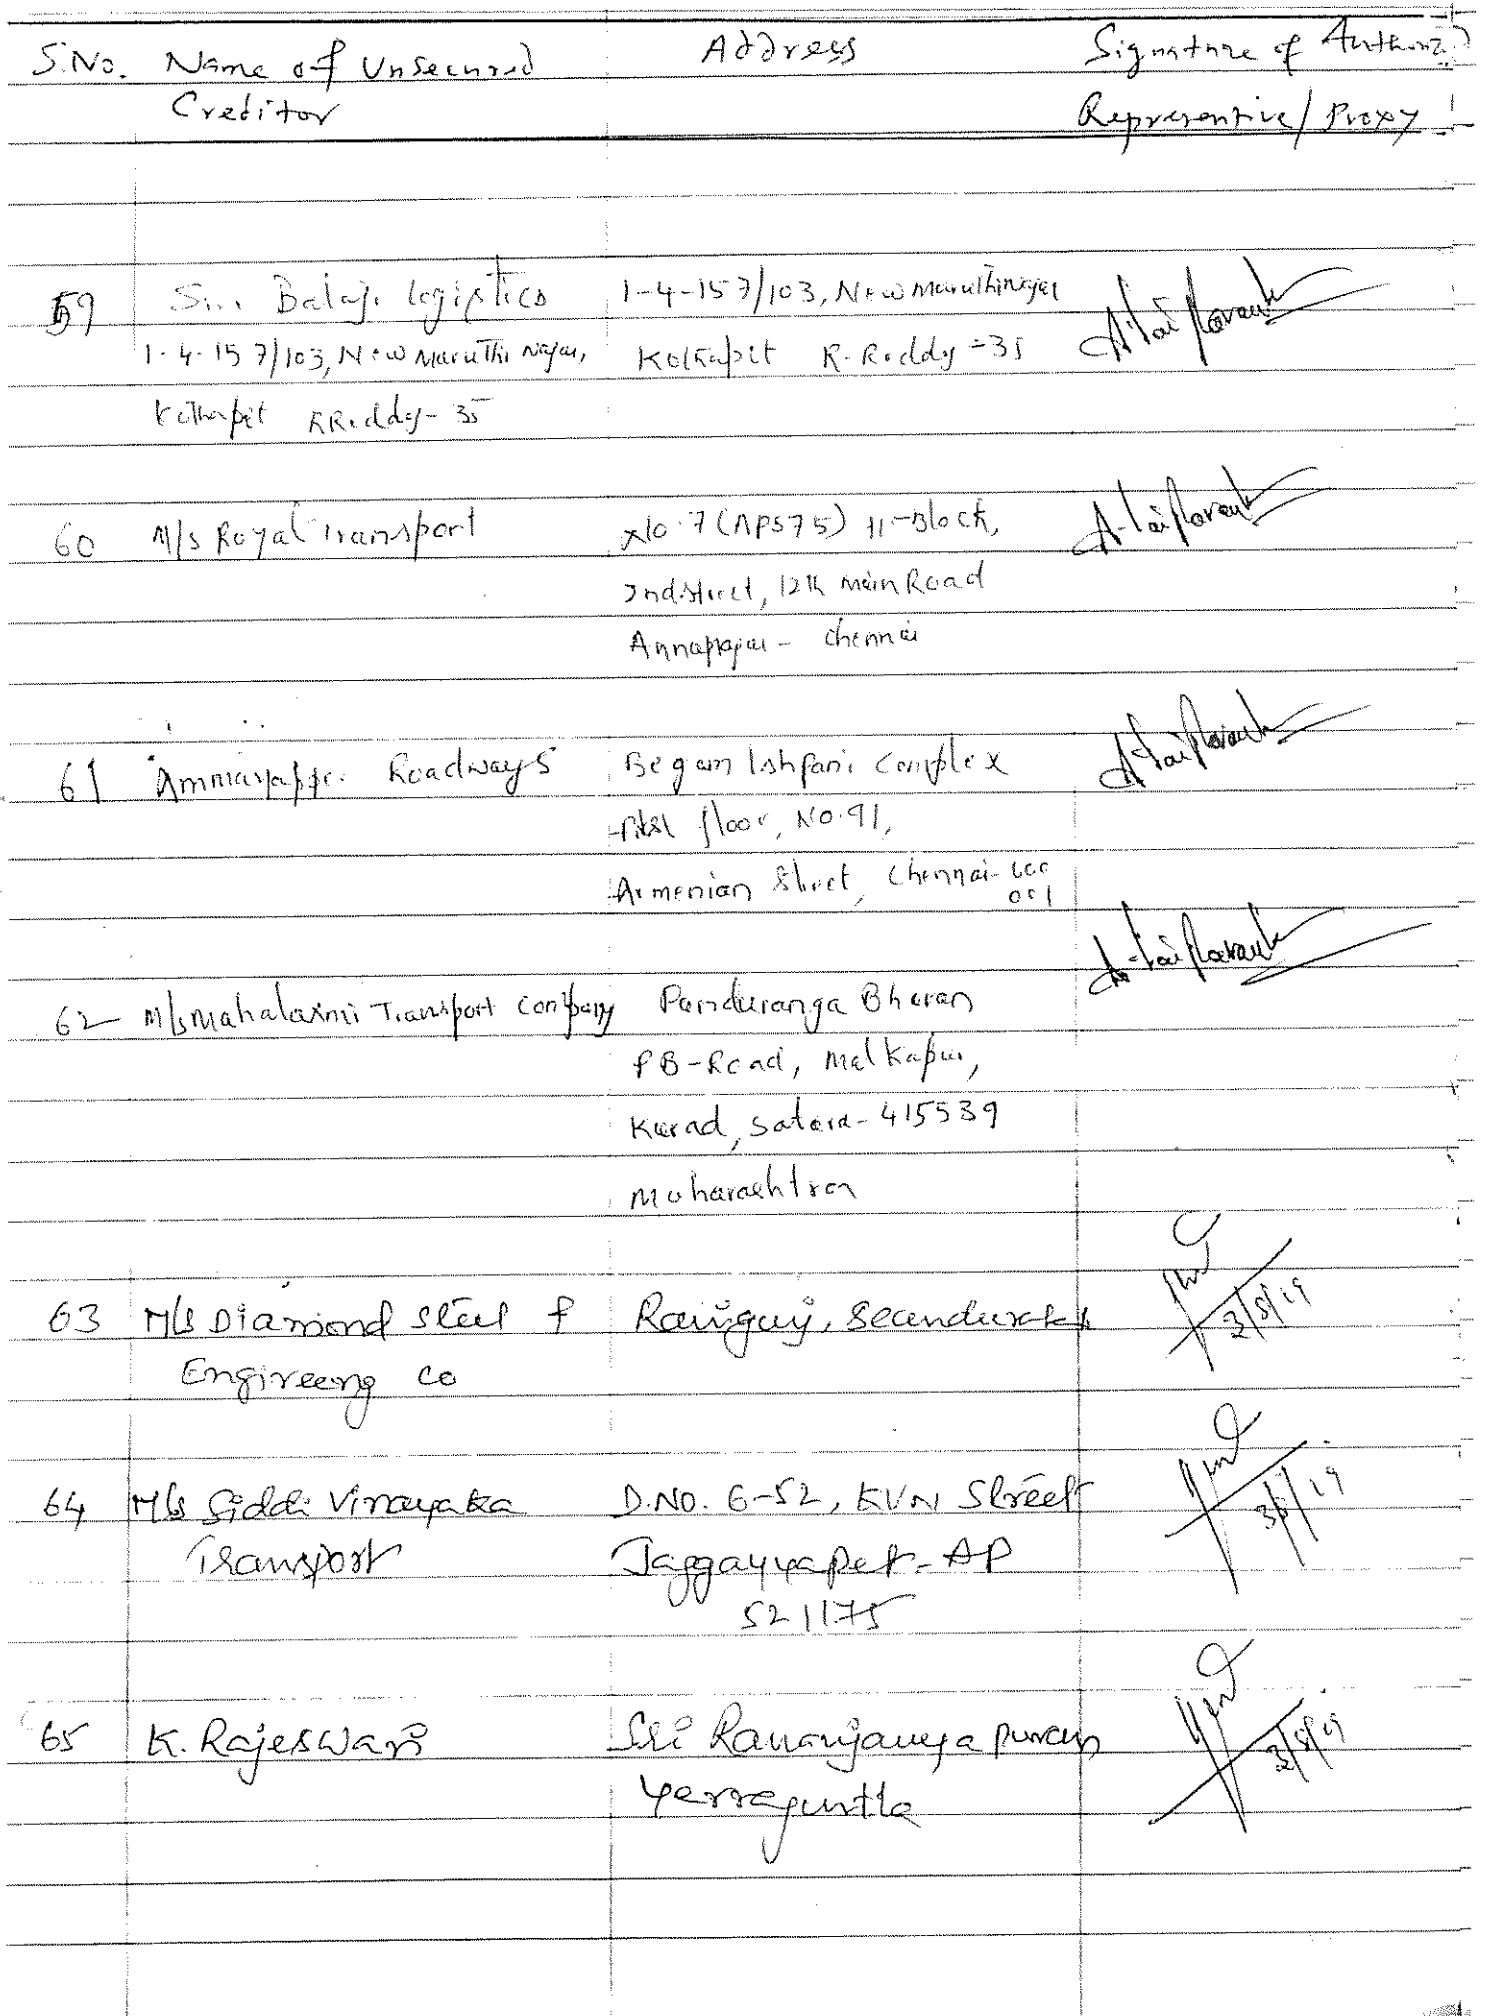 S.No. Name of Unsecured Address Signature of Authoriz
Creditor Representive/ Proxy
59 Sri. Balaji logistics 1-4-157/103, New Maruthinagar
1-4-157/103, New Maruthi Nagar, Kothapet R. Reddy-35
Kothapet R Reddy-35
60 M/s Royal Transport No.7 (AP575) H-Block,
2nd street, 12th Main Road
Annanagar - Chennai
61 Ammayappa Roadways Begam Ishpani Complex
First floor, No.91,
Armenian Street, Chennai-600
001
62 M/s Mahalaxmi Transport Company Panduranga Bhavan
PB-Road, Malkapur,
Karad, Satara-415539
Maharashtra
63 M/s Diamond Steel & Ranigunj, Secunderabad
3/8/19
Engineerng Co
64 M/s Siddi Vinayaka D.NO. 6-52, KVN Street
3/8/19
Transport Jaggayyapet-AP
521175
65 K. Rajeswari Sri Ramanjaneya puram
3/8/19
Yerraguntla